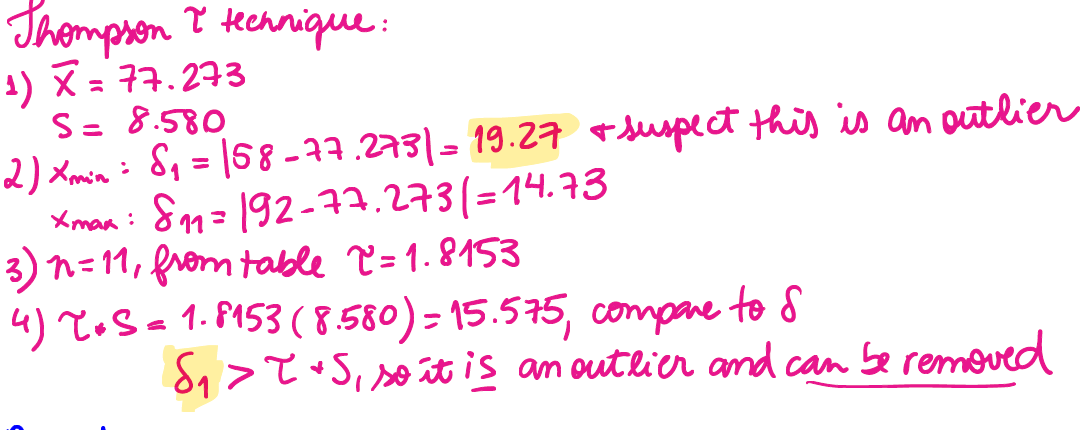 Thompson τ technique:
1) x̄ = 77.273
S = 8.580
2) xmin : δ1 = |58 - 77.273| = 19.27 ← suspect this is an outlier
xmax : δ11 = |92 - 77.273| = 14.73
3) n = 11, from table τ = 1.8153
4) τ * S = 1.8153 (8.580) = 15.575, compare to δ
δ1 > τ * S, so it is an outlier and can be removed